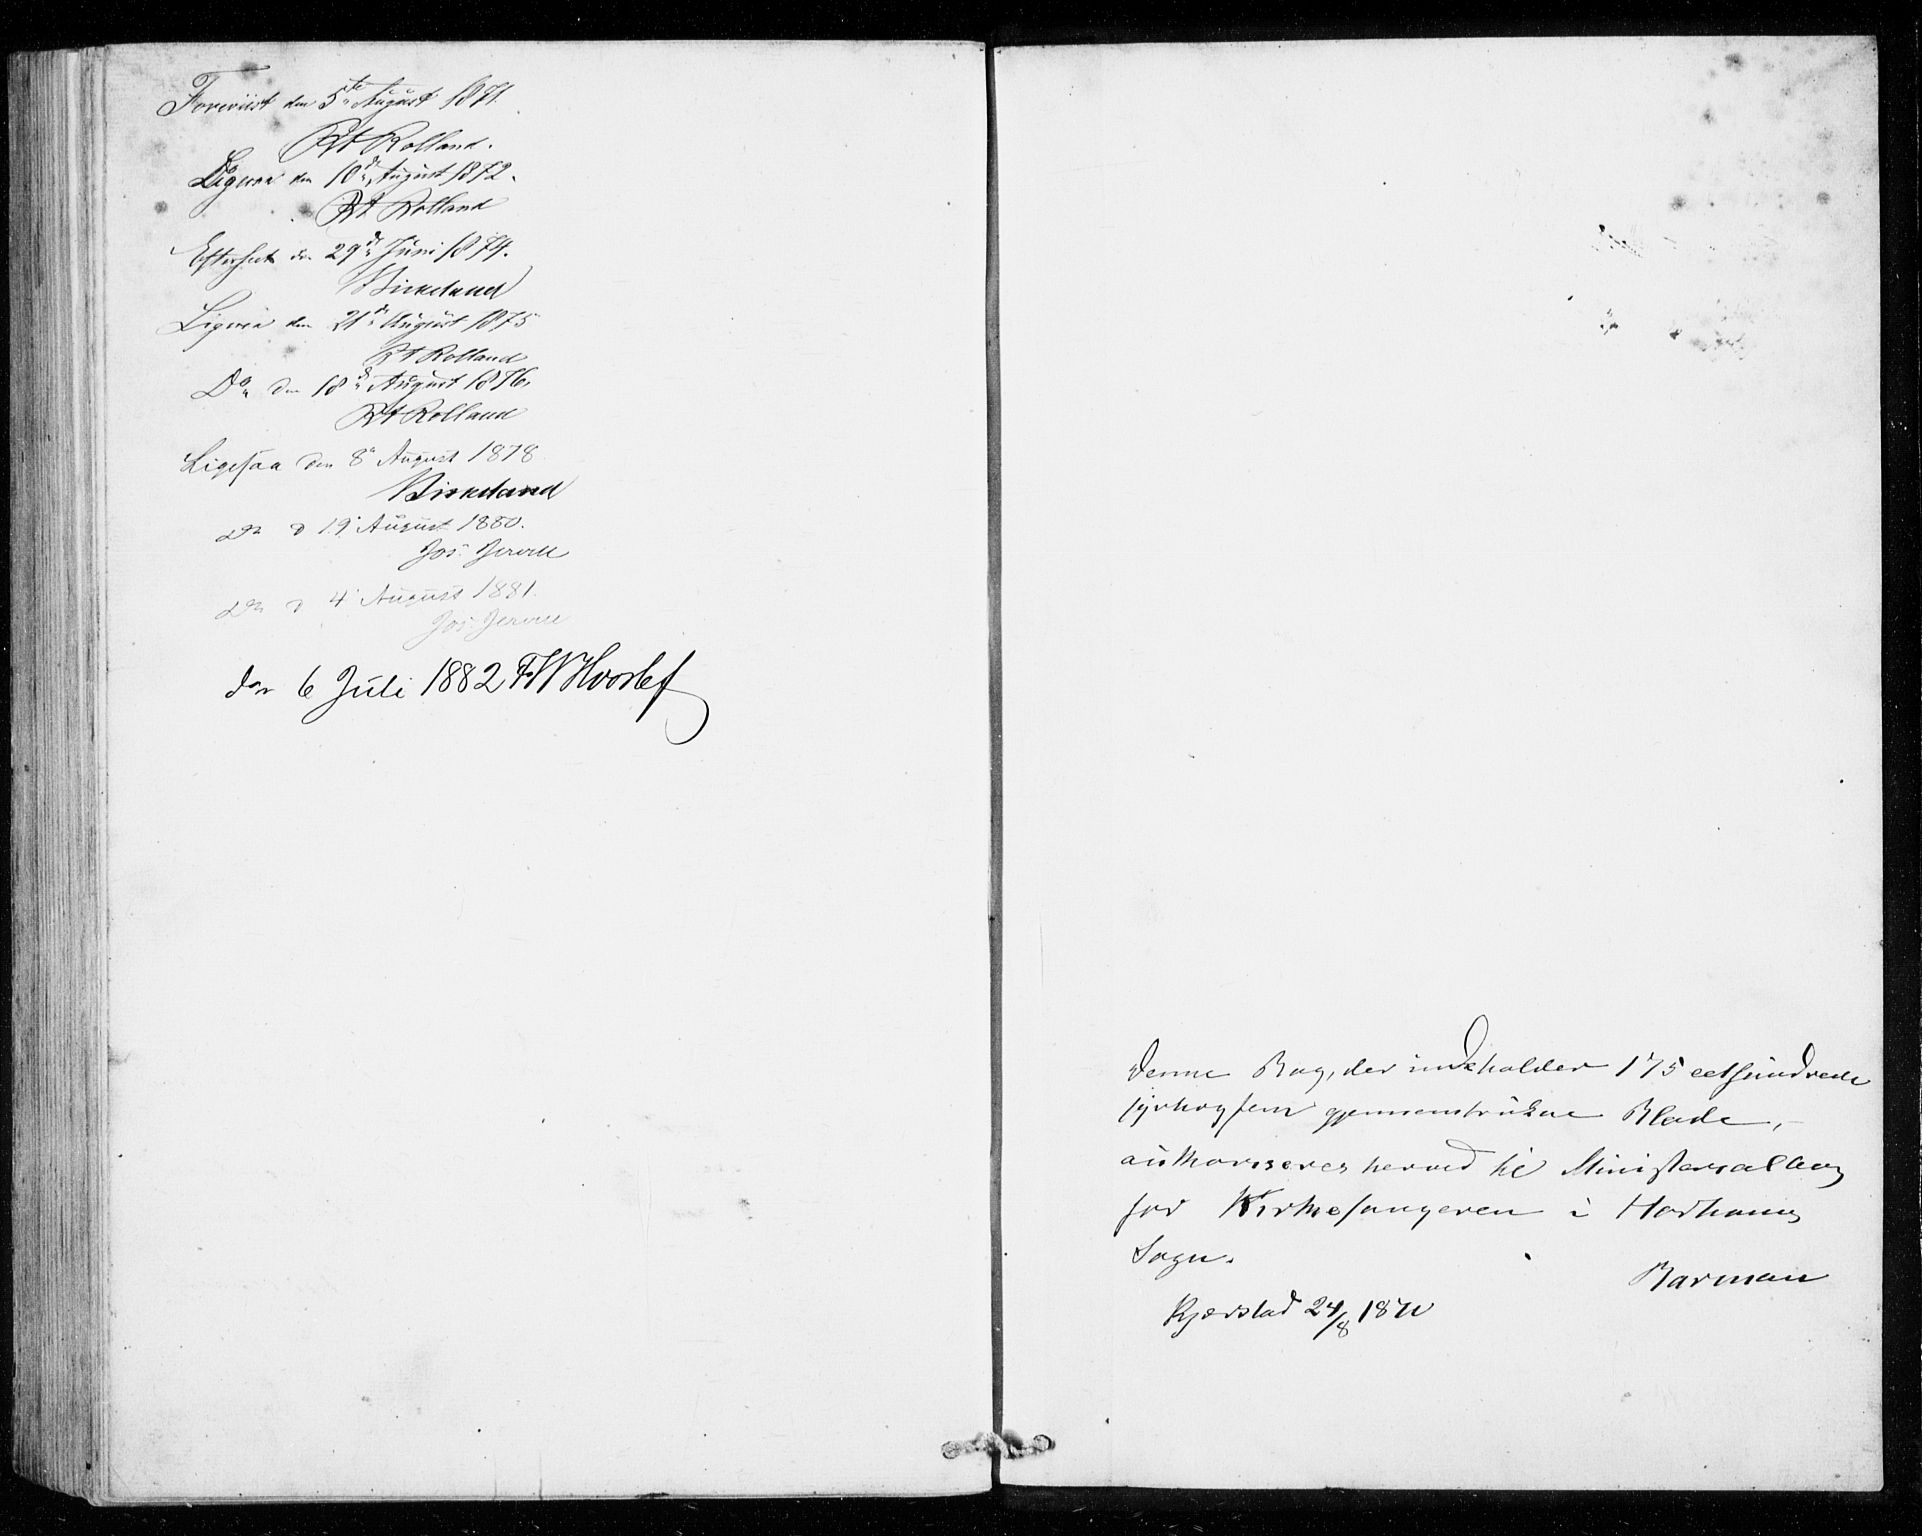 Foreviist den 5te August 1871.
Kt Rolland.
Ligesaa den 10de August 1872.
Kt Rolland
Efterseet den 29de Juni 1874.
Birkeland
Ligesaa den 21de August 1875
Kt Rolland
Do den 18de August 1876,
Kt Rolland
Ligesaa den 8de August 1878
Birkeland
Do d 19' August 1880.
Jos. Jervell
Do d 4' August 1881.
Jos. Jervell
do 6 Juli 1882 FWHvoslef
Denne Bog, der indeholder 175 eethundrede
syvtiogfem gjennemtrukne Blade,
authoriseres herved til Ministerialbog
for Kirkesangeren i Harhams
Sogn.
Barman
Kjerstad 24/8 1871